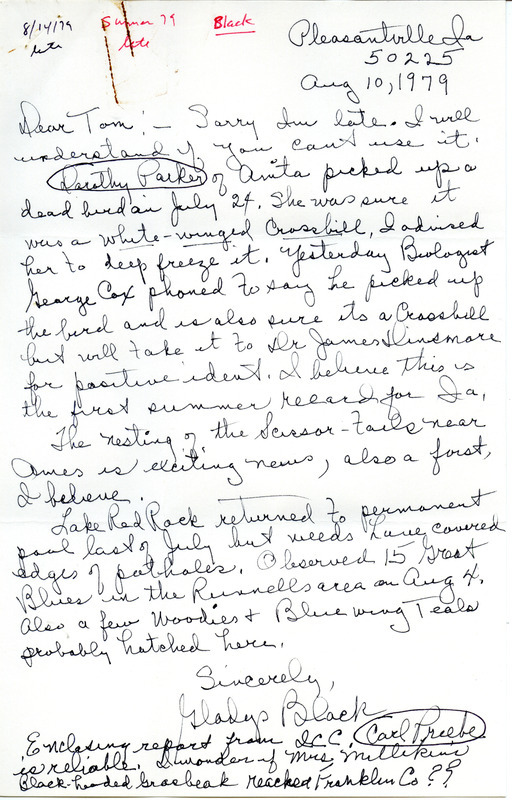 8/14/79 Summer 79 Black
late late
Pleasantville Ia
50225
Aug 10, 1979
Dear Tom: — Sorry Im late. I will
understand if you cant use it.
Dorothy Parker of Anita picked up a
dead bird on July 24. She was sure it
was a white-winged Crossbill, I advised
her to deep freeze it. Yesterday Biologist
George Cox phoned to say he picked up
the bird and is also sure its a Crossbill
but will take it to Dr James Dinsmore
for positive ident. I believe this is
the first summer record for Ia.
The nesting of the Scissor-tails near
Ames is exciting news, also a first,
I believe.
Lake Red Rock returned to permanent
pool last of July but weeds have covered
edges of potholes. Observed 15 Great
Blues in the Runnells area on Aug 4.
Also a few Woodies & Blue wing Teals
probably hatched here.
Sincerely,
Gladys Black
Enclosing report from I.C.C. Carl Priebe
is reliable. I wonder if Mrs. Millikin's
Black-headed Grosbeak reached Franklin Co??